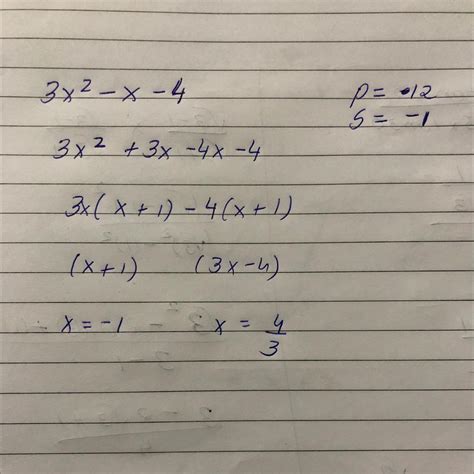 3x² - x - 4
p = -12
S = -1
3x² + 3x - 4x - 4
3x(x + 1) - 4(x + 1)
(x+1) (3x-4)
x = -1 x = 4/3